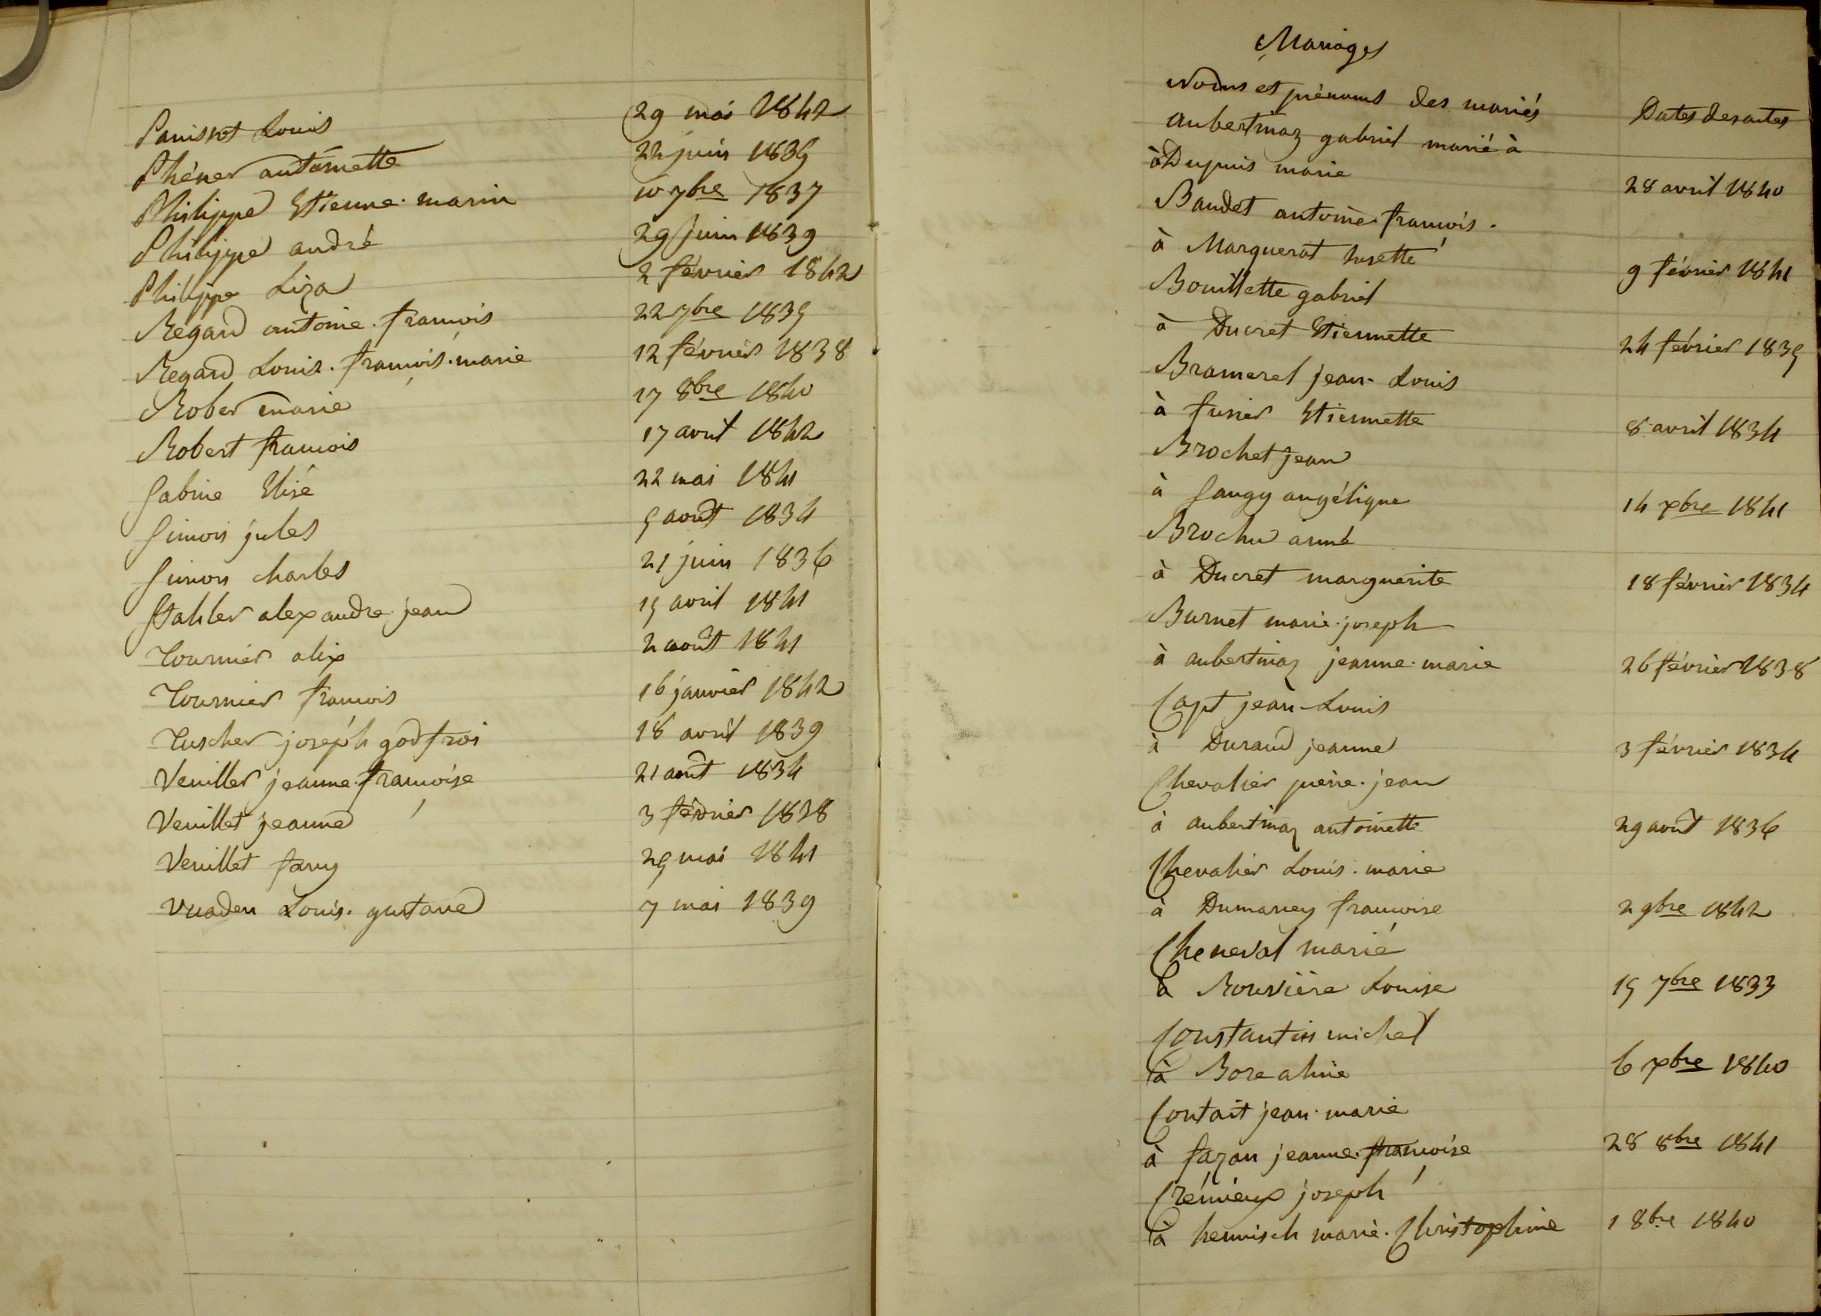 Panissot Louis 29 mai 1842
Phéner antoinette 22 juin 1835
Philippe Etienne. marin 10 7bre 1837
Philippe andré 29 juin 1839
Philippe Liza 2 février 1842
Regard antoine. francois 22 7bre 1835
Regard Louis. francois. marie 12 février 1838
Rober marie 17 8bre 1840
Robert francois 17 avril 1842
Sabine Elisé 22 mai 1841
Simon jules 5 août 1834
Simon charles 21 juin 1836
Stahler alexandre jean 15 avril 1841
Tournier alix 2 août 1841
Tournier francois 16 janvier 1842
Tuscher joseph godfroi 18 avril 1839
Veuiller jeanne francoise 21 août 1834
Veuillet jeanne 3 février 1838
Veuillet fany 25 mai 1841
Vuaden Louis. gustave 7 mai 1839
Mariages
Noms et prénoms des mariés Dates des actes
aubertinaz gabriel marié à
à Dupuis marie 28 avril 1840
Baudet antoine francois.
à Marguerat Susette 9 février 1841
Bouillette gabriel
à Ducret Etiennette 24 février 1835
Brameret jean-Louis
à fusier Etiennette 8 avril 1834
Brochet jean
à Saugy angélique 14 xbre 1841
Brochu aimé
à Ducret marguerite 18 février 1834
Burnet marie. joseph
à aubertinaz jeanne. marie 26 février 1838
Capt jean-Louis
à Durand jeanne 3 février 1834
Chevalier pierre. jean
à aubertinaz antoinette 29 août 1836
Chevalier Louis. marie
à Dumarey francoise 2 9bre 1842
Cheneval marie
à Rouvière Louise 15 7bre 1833
Constantin michel
à Bore aline 6 xbre 1840
Contait jean. marie
à fazan jeanne. francoise 28 8bre 1841
Crémieux joseph
à hennisch marie. Christophine 1 8bre 1840